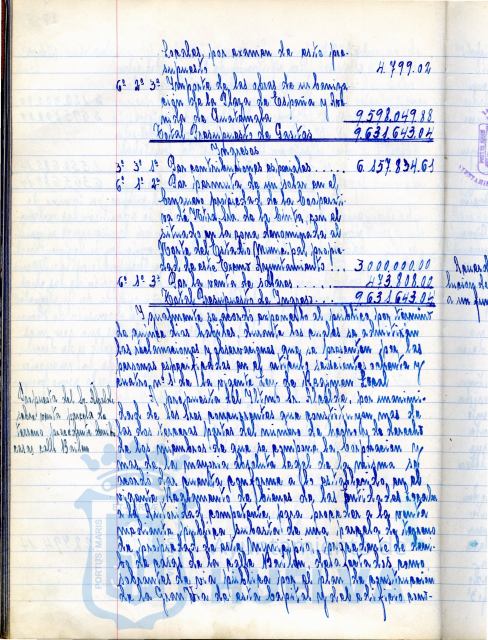 Locales, por examen de este pre-
supuesto 4.799.02
6º 2º 3º Importe de las obras de urbaniza-
ción de la Plaza de España y Ave-
nida de Guatemala 9.598.049.88
Total Presupuesto de Gastos 9.631.643.04
Ingresos
3º 3º 1º Por contribuciones especiales..... 6.157.834.61
6º 1º 2º Por permuta de un solar en el
propiedad de la Coopera-
de la con el
situado en la zona denominada al
Norte del Estadio Municipal propie-
dad de este Excmo Ayuntamiento... 3.000.000.00
6º 1º 3º Por la venta de solares....... 473.808.02
Total Presupuesto de Ingresos... 9.631.643.04
Igualmente se acordó exponerlo al público por término
de quince días hábiles, durante los cuales se admitirán
las reclamaciones y observaciones que se presenten por las
personas especificadas en el artículo seiscientos ochenta y
de la vigente Ley de Régimen Local
Propuesta del Sr. Alcalde
sobre venta parcela de
terreno procedente de
casas calle Bailén
A propuesta del Iltmo Sr. Alcalde, por unanimi-
dad de los concurrentes que constituyen mas de
las dos terceras partes del número de hecho y de derecho
de los miembros que la componen y
mas de la mayoría absoluta legal de la misma se
acordó en cuanto conforme a lo establecido en el
vigente Reglamento de Bienes de las Entidades Locales
competente para proceder a la venta
mediante pública subasta de una parcela de terreno
de propiedad de este Municipio procedente de
de casas de la calle Bailén, declarados como
sobrantes de vía pública por el plan de construcción
de la Gran Vía de esta capital y del edificio
Acuerdo
a un fun
PORTUS MARIS